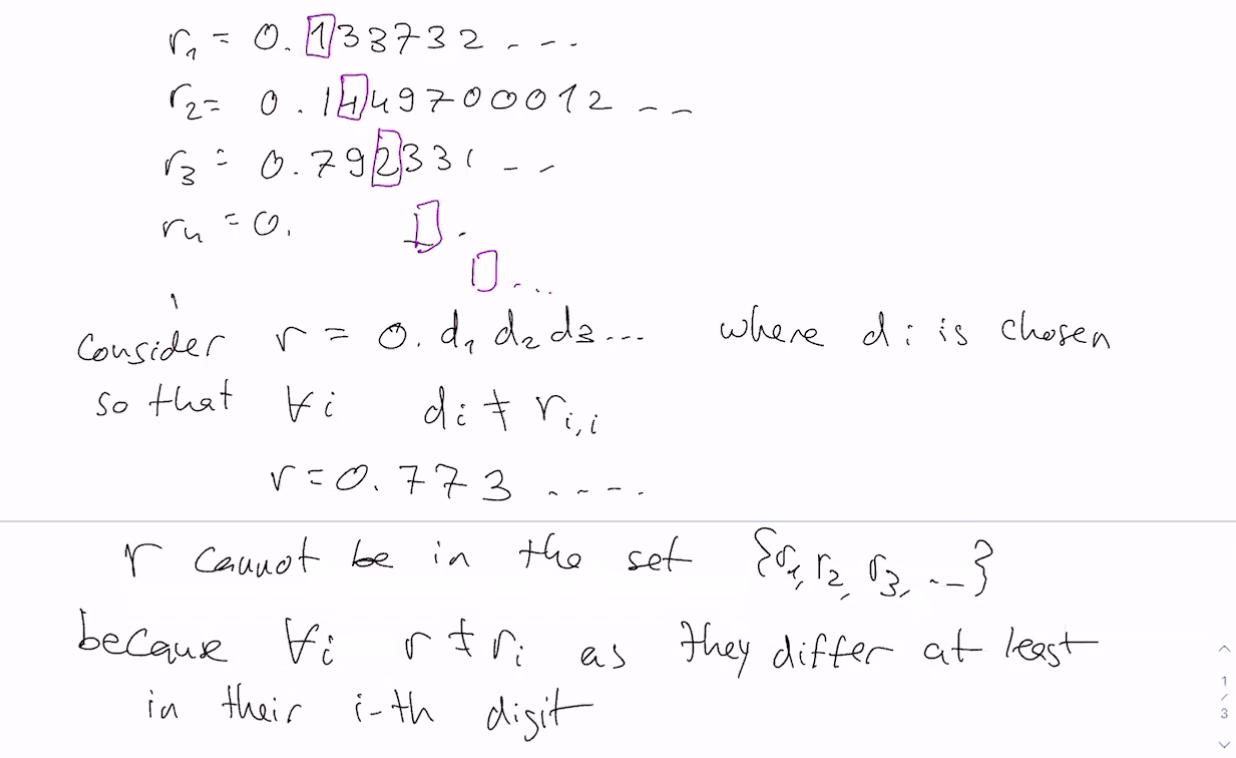 r₁ = 0.133732 ...
r₂ = 0.1449700012 ...
r₃ = 0.792331 ...
r₄ = 0. ...
consider r = 0.d₁ d₂ d₃... where di is chosen
so that ∀i di ≠ ri,i
r = 0.773 ....
r cannot be in the set {r₁, r₂, r₃, ...}
because ∀i r ≠ ri as they differ at least
in their i-th digit
1
/
3